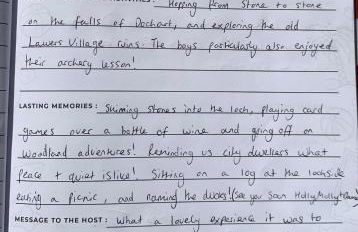 Hopping from stone to stone
on the falls of Dochart, and exploring the old
Lawers Village ruins. The boys particularly also enjoyed
their archery lesson!
LASTING MEMORIES: Skimming stones into the loch, playing card
games over a bottle of wine and going off on
woodland adventures! Reminding us city dwellers what
peace + quiet is like! Sitting on a log at the lochside
eating a picnic, and naming the ducks! (See you soon Holly, Molly +
MESSAGE TO THE HOST: What a lovely experience it was to